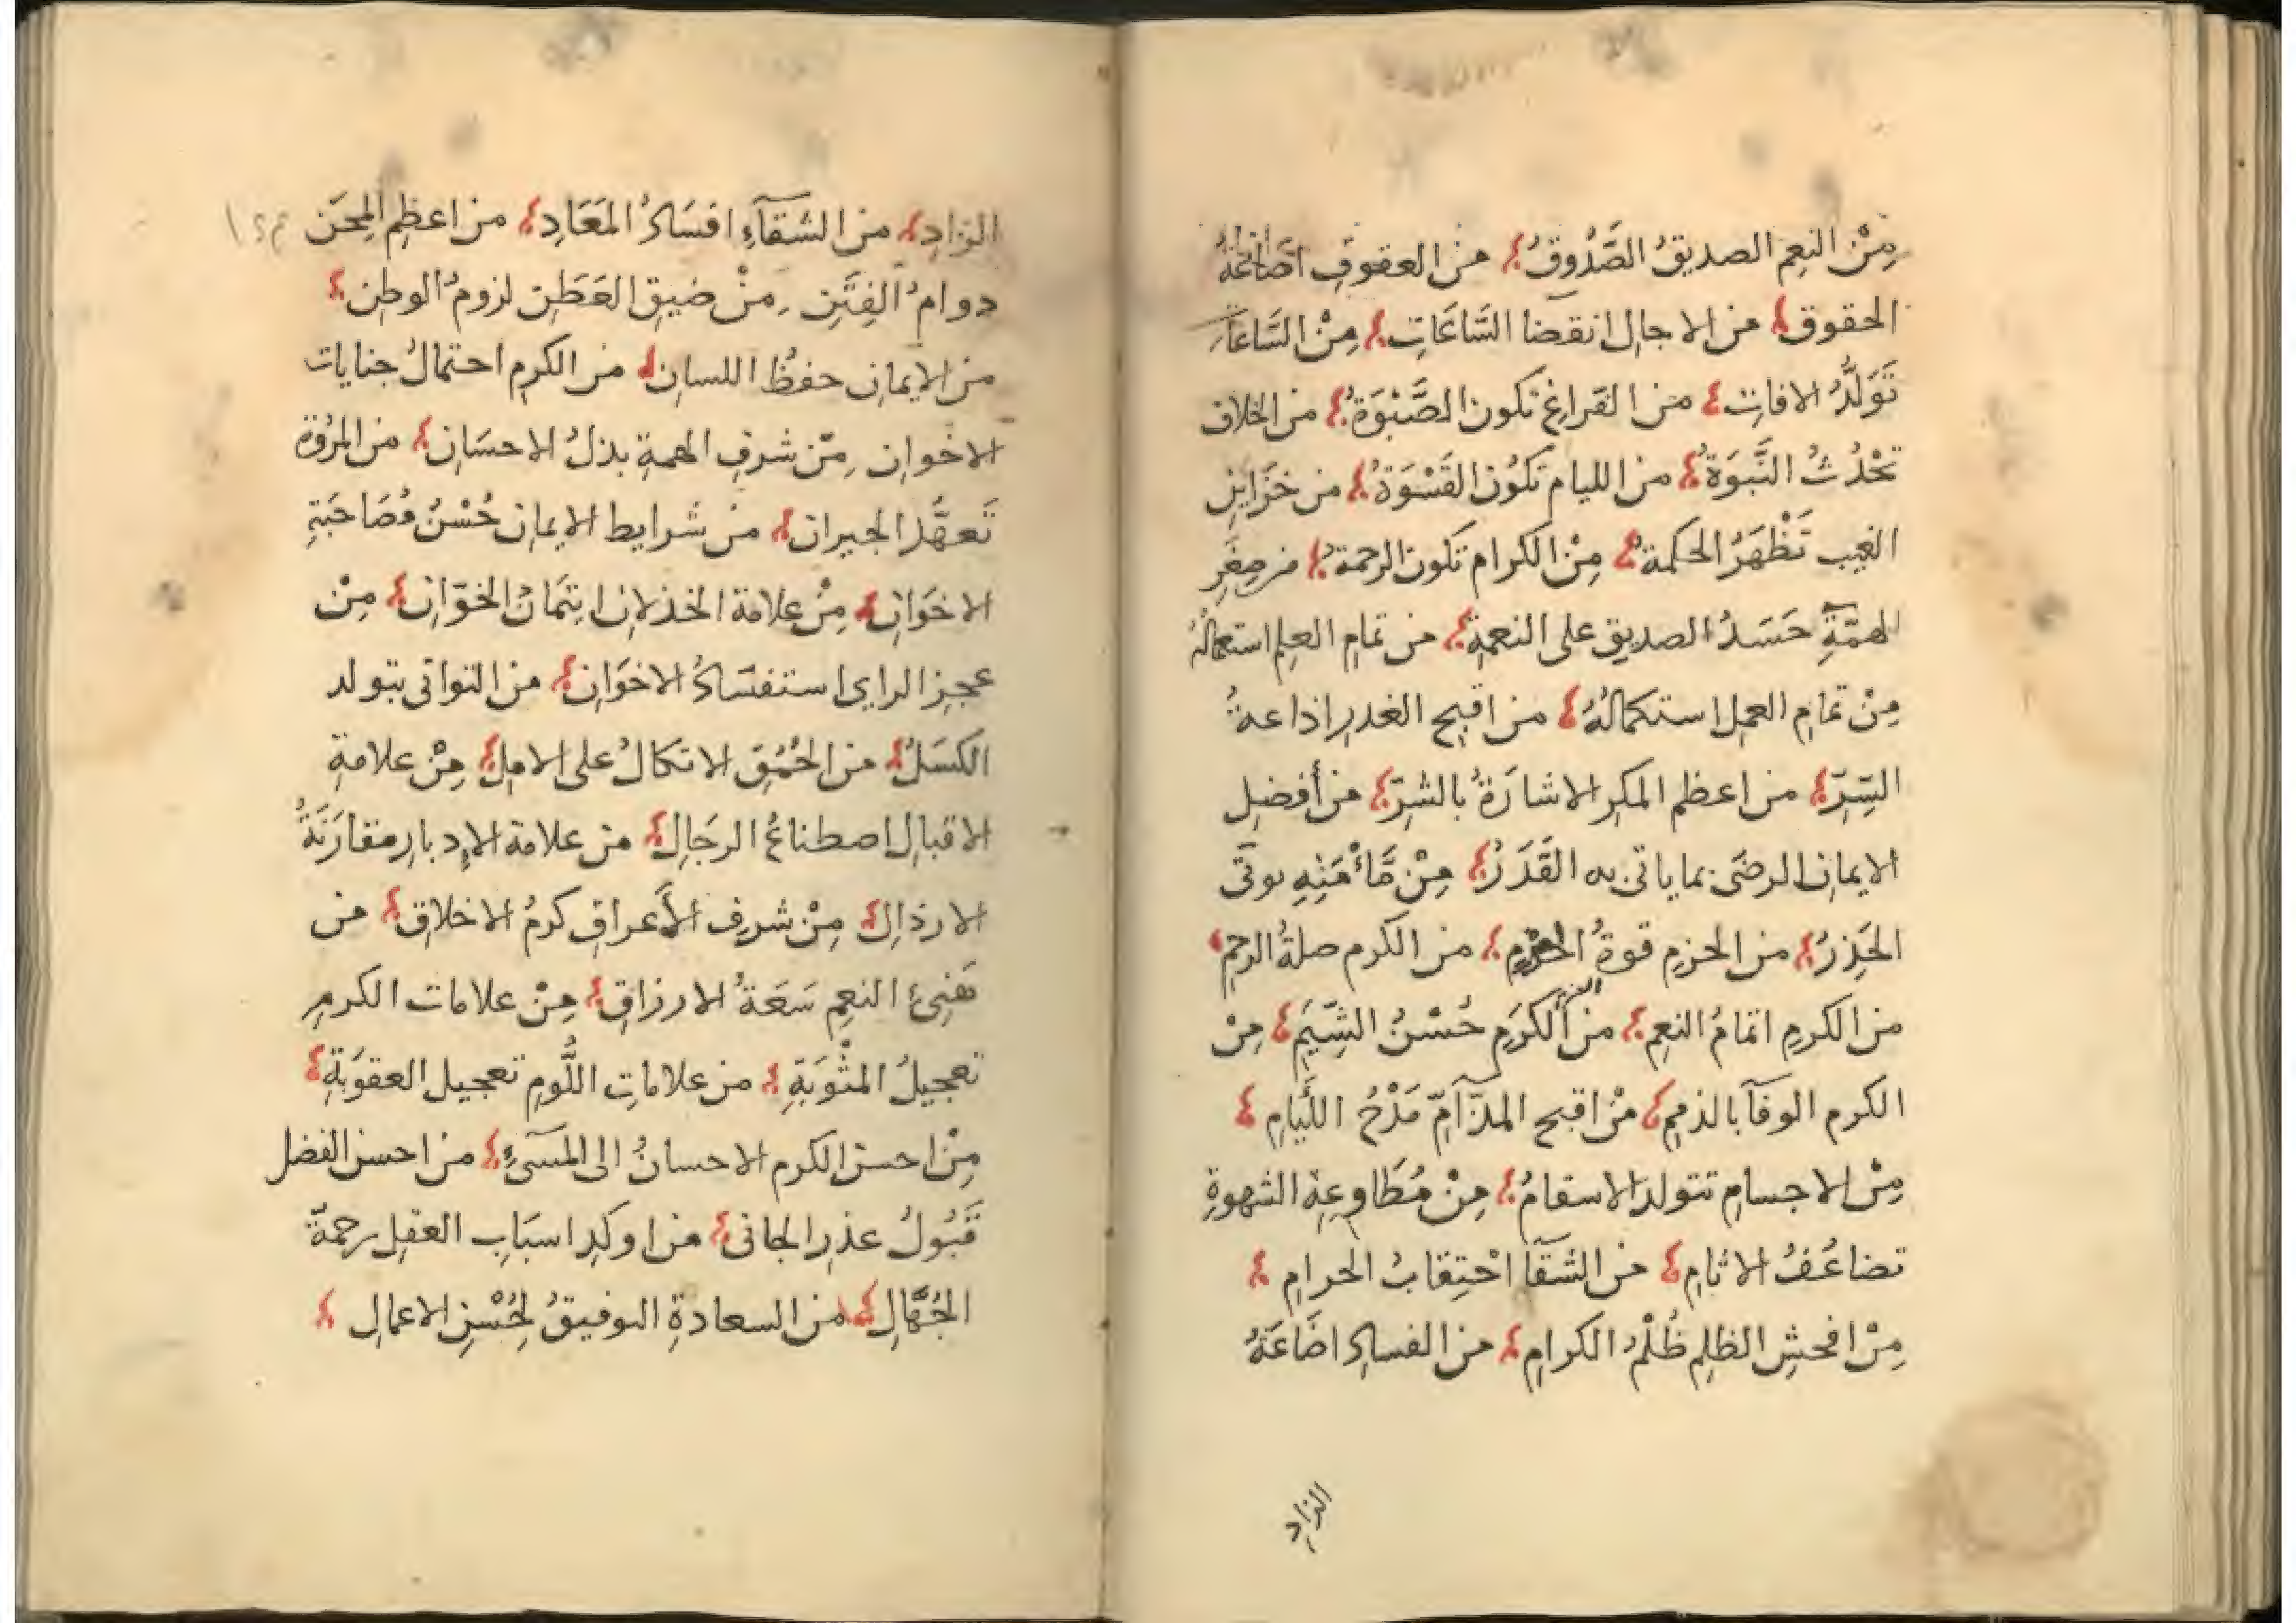 مِنْ النعِم الصديقُ الصَّدُوقُ؛ من العقوقِ اضَاعَةُ
الحقوق؛ من الاجالِ انقضا السَّاعَاتِ؛ مِنْ السَّاعَات
تَوَلُّدُ الافاتِ؛ من الفراغِ تكون الصَّبْوَةُ؛ من الخلاف
تَحْدُثُ النَّبوَةُ؛ من الليام تكُون القَسْوَةُ؛ من خزَاينِ
الغيب تَظْهَرُ الحكمة؛ مِنْ الكرام تكون الرحمةُ؛ من صِغَرِ
الهمّةِ حَسَدُ الصديق على النعمةِ؛ من تمامِ العلِم استعمالُهُ
مِنْ تمامِ العملِ استكمالُهُ؛ من اقبح الغدرِ اذاعةُ
السِّرّ؛ من اعظم المكرِ الاشارَةُ بالشرّ؛ من أفضلِ
الايمانِ الرضَى بما ياتى به القَدَرُ؛ مِنْ مَأْمَنِهِ يوتَى
الحَذِرُ؛ من الحزمِ قوةُ العزم؛ من الكرم صلةُ الرحم؛
من الكرمِ اتمامُ النعِم؛ من ألكرَمِ حُسْنُ الشِّيَمِ؛ مِنْ
الكرم الوفآ بالذمم؛ مِنْ اقبح المذآمّ مَدْحُ اللَّيَامِ؛
مِنْ الاجسامِ تتولد الاسقامُ؛ مِنْ مُطَاوعةِ الشهوةِ
تضاعُفُ الاثامِ؛ من الشقآ احْتِقابُ الحرامِ؛
مِنْ افحشِ الظلِم ظُلْمُ الكرامِ؛ من الفسادِ اضَاعَةُ
الزادِ
الزادِ؛ من الشقآءِ افسَادُ المَعَادِ؛ من اعظِم المِحَن
دوامُ الفِتَنِ مِنْ ضيقِ العَطَنِ لزومُ الوطنِ؛
من الايمانِ حفظُ اللسان؛ من الكرم احتمالُ جنايات
الاخوانِ مِنْ شرفِ الهمةِ بذلُ الاحسَانِ؛ من المرُوة
تَعهَّد الجيران؛ من شرايط الايمانِ حُسْنُ مُصَاحبَةِ
الاخوَانِ؛ مِنْ علامة الخذلانِ ايتمَانُ الخوّانِ؛ مِنْ
عجزِ الراي استفسَادُ الاخوَانِ؛ من التوانى يتولد
الكسَلُ؛ من الحُمُقِ الاتكالُ على الامل؛ مِنْ علامةِ
الاقبالِ اصطناعُ الرجَالِ؛ من علامة الاٍدبارِ مقارَنَةُ
الارذالِ؛ مِنْ شرفِ الأعراقِ كرمُ الاخلاقِ؛ من
هَنِىْءِ النعِم سَعَةُ الارزاقِ؛ مِنْ علامات الكرمِ
تعجيلُ المثْوَبَةِ؛ من علاماتِ اللُّوم تعجيل العقوَبةِ؛
مِنْ احسن الكرم الاحسانُ الى المسَىْءِ؛ من احسن الفضل
قَبُولُ عذرِ الجانى؛ من اوكدِ اسبَابِ العقلِ رحمةُ
الجُهّالِ؛ من السعادةِ التوفيقُ لِحُسْنِ الاعمالِ؛